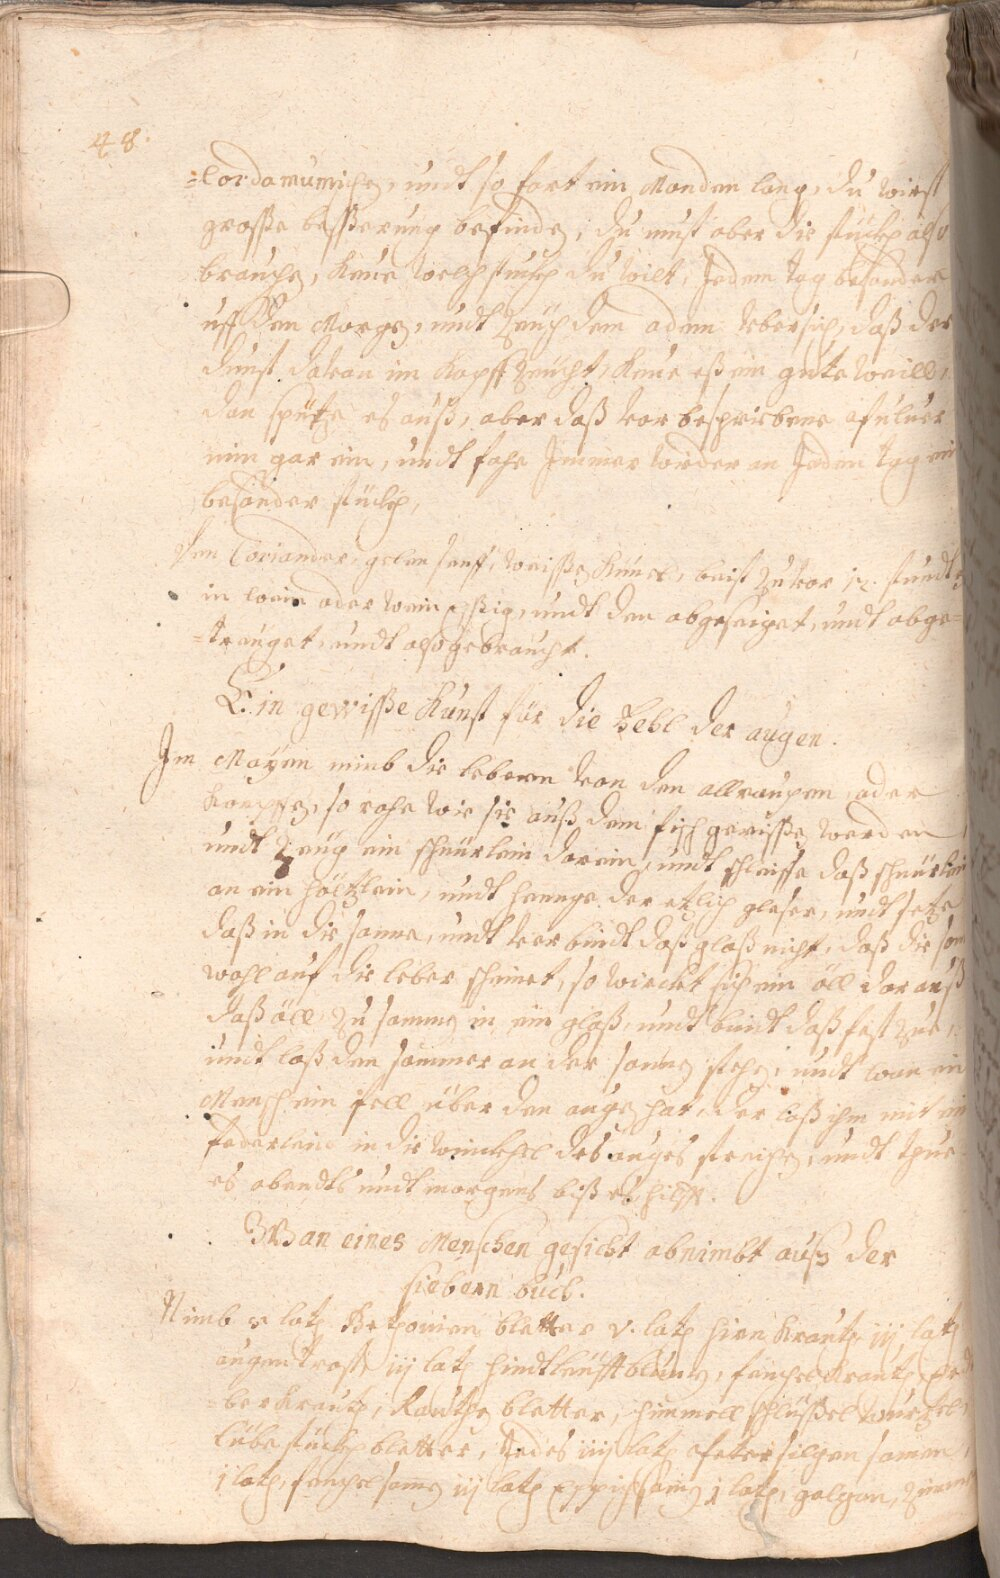 48.
=Cordamumichen, undt so fort ein Monden lang, du wirst
grosse besserung befinden, du must aber die stückh also
brauchen, Keue welch stuckh du wilt, Jedem tag besonder
uff den Morgen, undt zeuch dem adem übersich, daß der
dunst davon im Kopff zeücht, Keue eß ein gute weill,
dan spütze es auß, aber daß vor beschriebene
nim gar ein, undt fahe Immer wider an Jedem tag ein
besonder stückh,
Den Coriander, gelen senff, weissen Kümel, beist zuvor 12. stundt
in wein oder wein essig, undt den abgeseiget, undt abge=
=treuget, undt also gebraucht.
Ein gewisse Kunst für die Fehl der augen.
Im Mayen nimb die lebern von den allraupen oder
so rohe wie sie auß dem fisch gerissen werden
undt zeug ein schnürlein darein, undt schleiffe daß schnürlein
an ein höltzlein, undt henge der etlich gleser, undt setze
daß in die sonne, undt verbindt daß glaß nicht, daß die son
wohl auf die leber scheinet, so wircket sich ein öll darauß
daß öll zu samen in ein glaß, undt bindt daß fest zue,
undt laß den sommer an der sonnen stehen, undt wan ein
Mensch ein fell über den augen hat, der laß ihm mit ein
federlein in die winckhel des auges streichen, undt thue
es abendts undt morgens biß es hilfft.
Wan eines Menschen gesicht abnimbt auß der
siebern buch.
Nimb 5 loth Bethonien bletter v. loth hirn Krauth iij loth
augentrost iij loth hindtleüfftblumen, fenchel Krauth
=ber Krauth, Rauthen bletter, himmell schlüssel wurtzel,
Lübestückh bletter, Jedes iiij loth petersilgen samen
j loth, fenchel samen iij loth Eppich samen j loth, galgan,